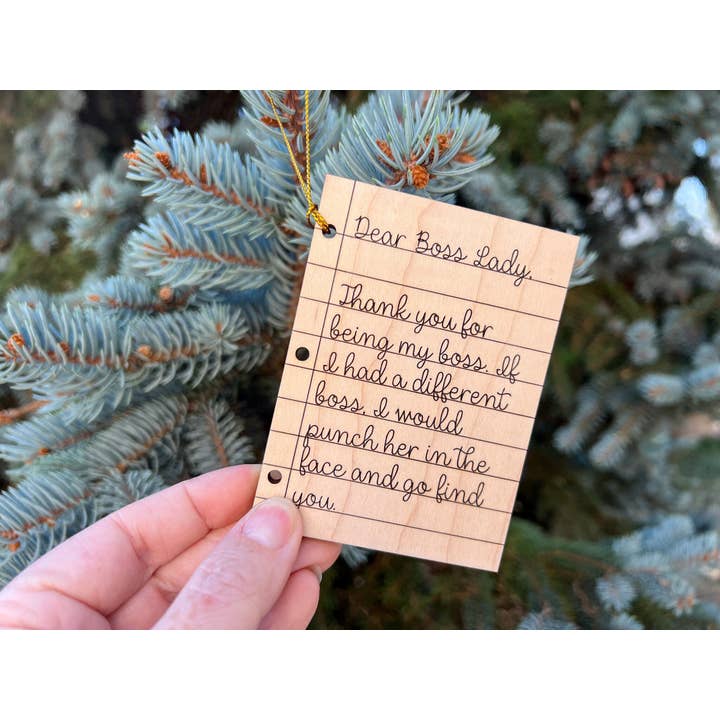 Dear Boss Lady,
Thank you for
being my boss. If
I had a different
boss, I would
punch her in the
face and go find
you.